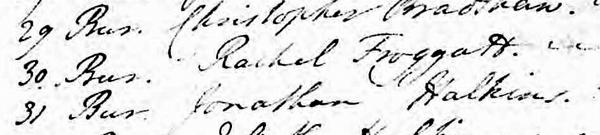 29 Bur. Christopher
30 Bur. Rachel Froggatt.
31 Bur Jonathan Halkins.